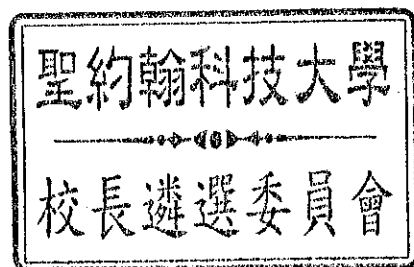 聖約翰科技大學
校長遴選委員會